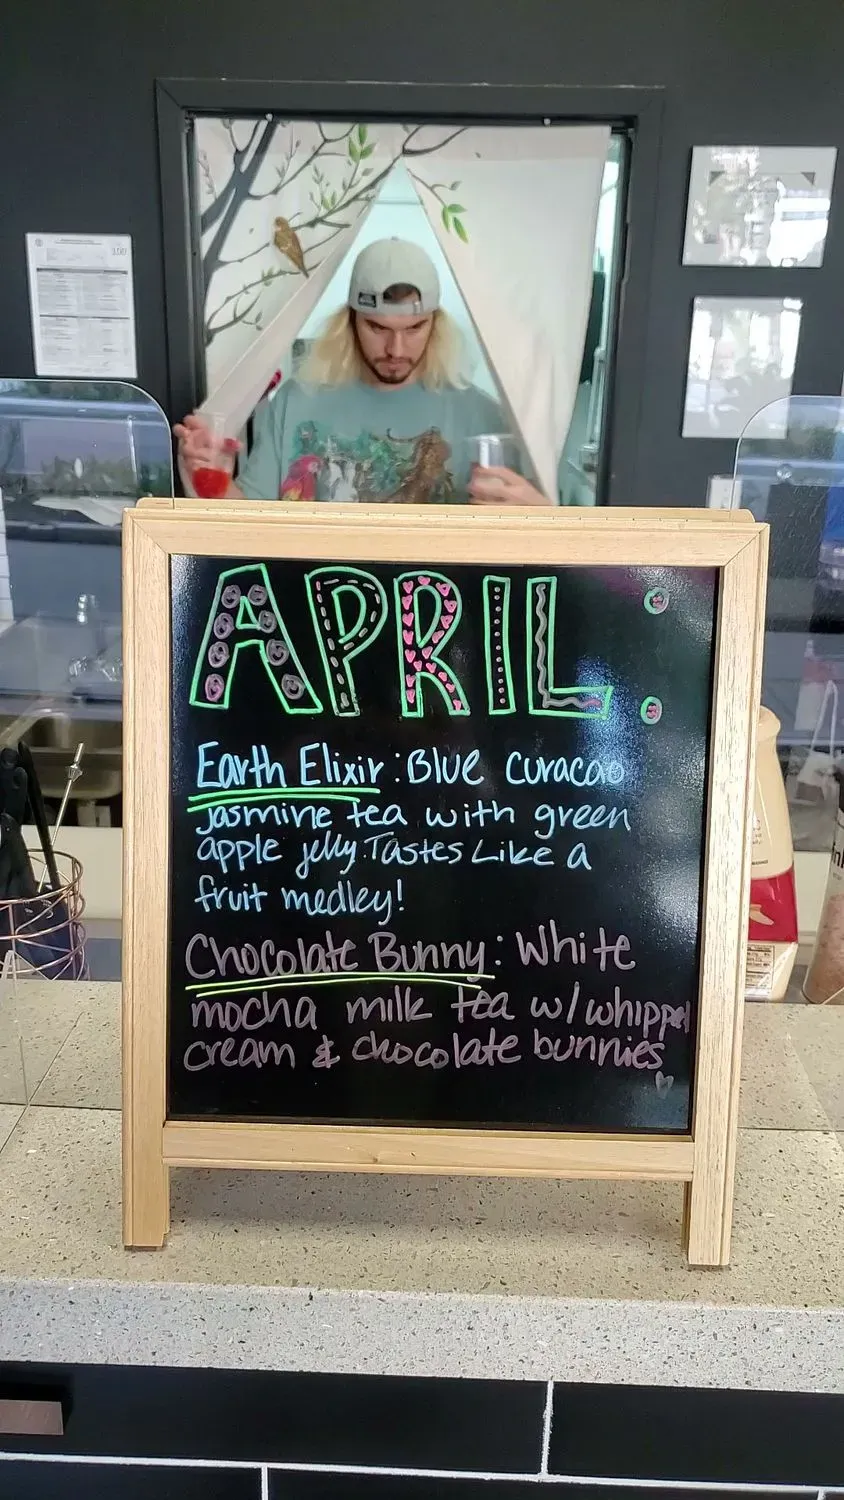 APRIL:
Earth Elixir: Blue curacao
jasmine tea with green
apple jelly. Tastes Like a
fruit medley!
Chocolate Bunny: White
mocha milk tea w/whipped
cream & chocolate bunnies